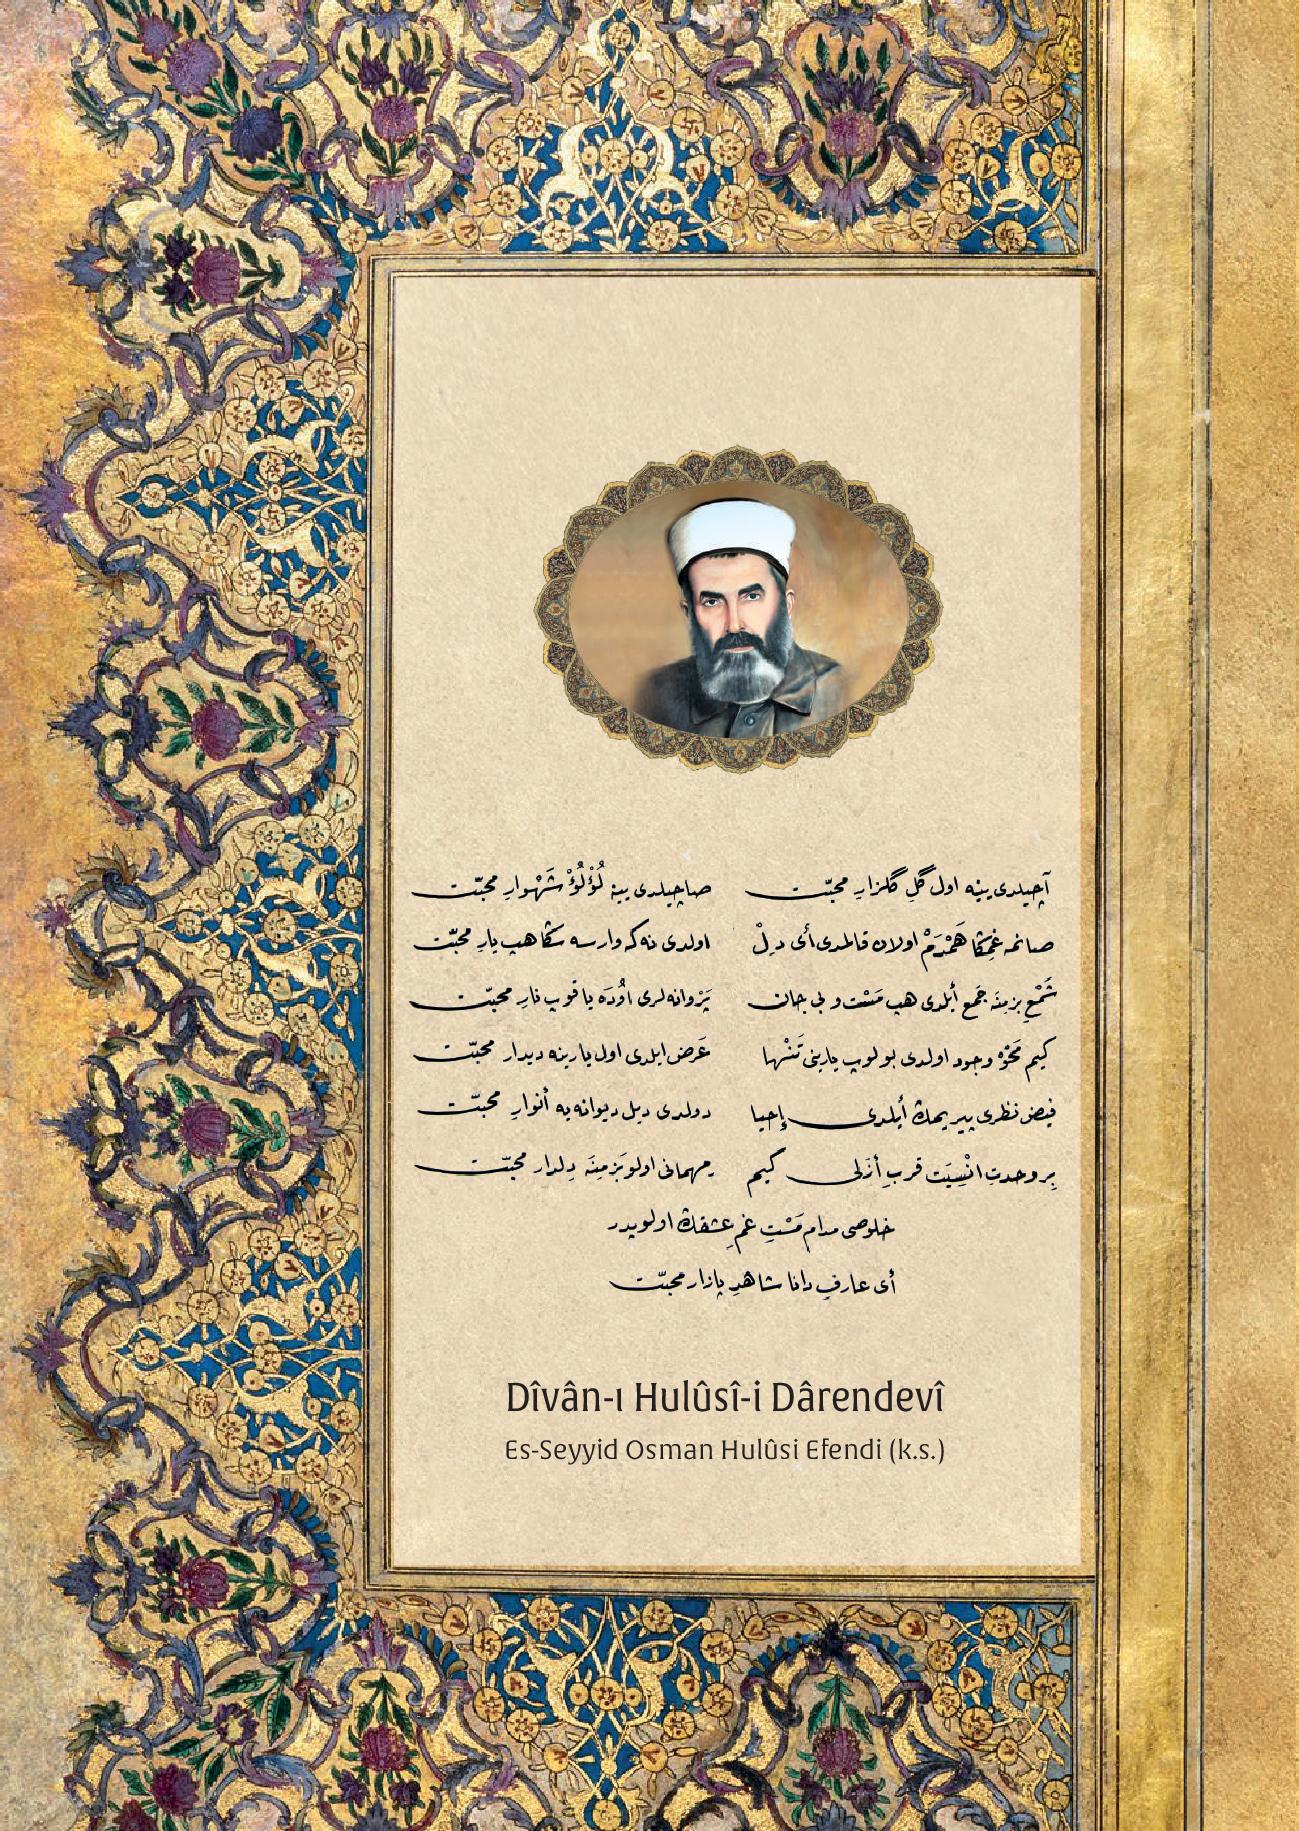 آچیلدی یینه اول گل گلزارِ محبّت صاچیلدی یینه لُؤْلُؤْ شَهْوارِ محبّت
صانمه غمڭا هَمْدَمْ اولان قالمدی أی دِلْ اولدی نه که وارسه سڭا هپ یارِ محبّت
شَمْعِ بزمِنَه جَمع أیلدی هپ مَسْت و بی جان پَرْوانه‌لری اوُدَه یاقوب نارِ محبّت
کیم مَحْوْه وجود اولدی بولوپ یارینی تَنْها عَرض ایلدی اول یارینه دیدار محبّت
فیض نظری پیر یمڭ أیلدی إحیا دولدی دیل دیوانه‌یه أنوارِ محبّت
بِر وحدتِ انْسِیَت قربِ أزَلی کیم مهمانی اولو بَزمِنَه دِلدار محبّت
خلوصی مدام مَسْتِ غمِ عشقڭ اولویدر
أی عارفِ دانا شاهدِ پازار محبّت
Dîvân-ı Hulûsî-i Dârendevî
Es-Seyyid Osman Hulûsi Efendi (k.s.)